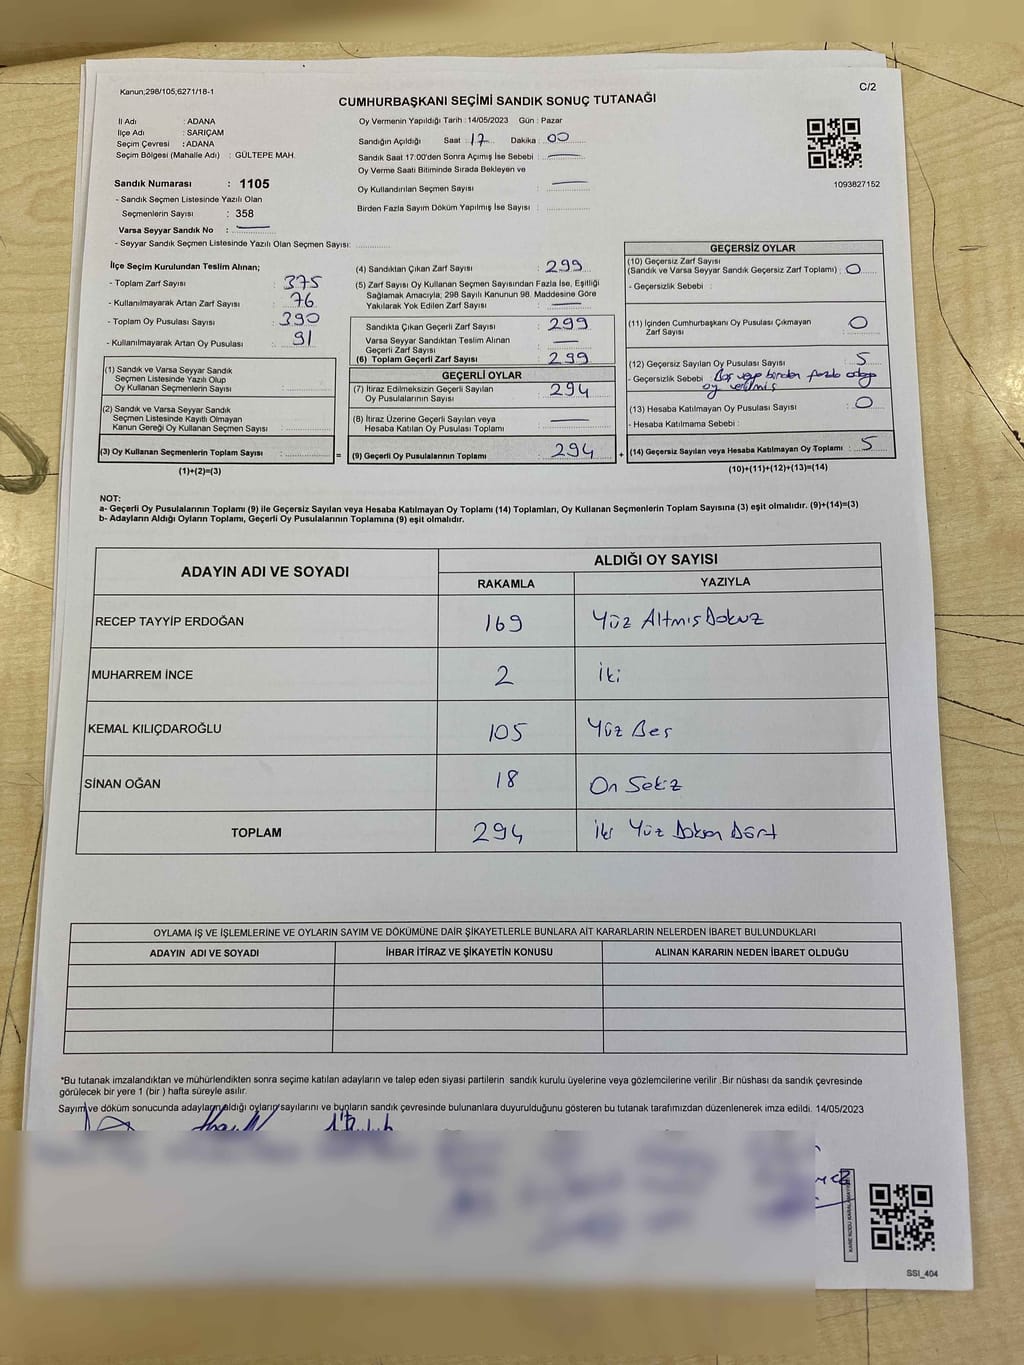 Kanun;298/105,6271/18-1
C/2
CUMHURBAŞKANI SEÇİMİ SANDIK SONUÇ TUTANAĞI
İl Adı : ADANA
İlçe Adı : SARIÇAM
Seçim Çevresi : ADANA
Seçim Bölgesi (Mahalle Adı) : GÜLTEPE MAH.
Sandık Numarası : 1105
- Sandık Seçmen Listesinde Yazılı Olan
Seçmenlerin Sayısı : 358
Varsa Seyyar Sandık No : —
- Seyyar Sandık Seçmen Listesinde Yazılı Olan Seçmen Sayısı:
Oy Vermenin Yapıldığı Tarih : 14/05/2023 Gün : Pazar
Sandığın Açıldığı Saat : 17 Dakika : 00
Sandık Saat 17:00'den Sonra Açımış İse Sebebi : —
Oy Verme Saati Bitiminde Sırada Bekleyen ve
Oy Kullandırılan Seçmen Sayısı : —
Birden Fazla Sayım Döküm Yapılmış İse Sayısı :
1093827152
İlçe Seçim Kurulundan Teslim Alınan;
- Toplam Zarf Sayısı : 375
- Kullanılmayarak Artan Zarf Sayısı : 76
- Toplam Oy Pusulası Sayısı : 390
- Kullanılmayarak Artan Oy Pusulası : 91
(1) Sandık ve Varsa Seyyar Sandık
Seçmen Listesinde Yazılı Olup
Oy Kullanan Seçmenlerin Sayısı :
(2) Sandık ve Varsa Seyyar Sandık
Seçmen Listesinde Kayıtlı Olmayan
Kanun Gereği Oy Kullanan Seçmen Sayısı :
(3) Oy Kullanan Seçmenlerin Toplam Sayısı :
=
(1)+(2)=(3)
(4) Sandıktan Çıkan Zarf Sayısı : 299
(5) Zarf Sayısı Oy Kullanan Seçmen Sayısından Fazla İse, Eşitliği
Sağlamak Amacıyla; 298 Sayılı Kanunun 98. Maddesine Göre
Yakılarak Yok Edilen Zarf Sayısı : —
Sandıkta Çıkan Geçerli Zarf Sayısı : 299
Varsa Seyyar Sandıktan Teslim Alınan
Geçerli Zarf Sayısı : —
(6) Toplam Geçerli Zarf Sayısı : 299
GEÇERLİ OYLAR
(7) İtiraz Edilmeksizin Geçerli Sayılan
Oy Pusulalarının Sayısı : 294
(8) İtiraz Üzerine Geçerli Sayılan veya
Hesaba Katılan Oy Pusulası Toplamı : —
(9) Geçerli Oy Pusulalarının Toplamı : 294
+
GEÇERSİZ OYLAR
(10) Geçersiz Zarf Sayısı
(Sandık ve Varsa Seyyar Sandık Geçersiz Zarf Toplamı) : 0
- Geçersizlik Sebebi :
(11) İçinden Cumhurbaşkanı Oy Pusulası Çıkmayan
Zarf Sayısı : 0
(12) Geçersiz Sayılan Oy Pusulası Sayısı : 5
- Geçersizlik Sebebi : Boş veya birden fazla adaya
oy verilmiş
(13) Hesaba Katılmayan Oy Pusulası Sayısı : 0
- Hesaba Katılmama Sebebi :
(14) Geçersiz Sayılan veya Hesaba Katılmayan Oy Toplamı : 5
(10)+(11)+(12)+(13)=(14)
NOT:
a- Geçerli Oy Pusulalarının Toplamı (9) ile Geçersiz Sayılan veya Hesaba Katılmayan Oy Toplamı (14) Toplamları, Oy Kullanan Seçmenlerin Toplam Sayısına (3) eşit olmalıdır. (9)+(14)=(3)
b- Adayların Aldığı Oyların Toplamı, Geçerli Oy Pusulalarının Toplamına (9) eşit olmalıdır.
ADAYIN ADI VE SOYADI
ALDIĞI OY SAYISI
RAKAMLA YAZIYLA
RECEP TAYYİP ERDOĞAN 169 Yüz Altmış Dokuz
MUHARREM İNCE 2 İki
KEMAL KILIÇDAROĞLU 105 Yüz Beş
SİNAN OĞAN 18 On Sekiz
TOPLAM 294 İki Yüz Doksan Dört
OYLAMA İŞ VE İŞLEMLERİNE VE OYLARIN SAYIM VE DÖKÜMÜNE DAİR ŞİKAYETLERLE BUNLARA AİT KARARLARIN NELERDEN İBARET BULUNDUKLARI
ADAYIN ADI VE SOYADI İHBAR İTİRAZ VE ŞİKAYETİN KONUSU ALINAN KARARIN NEDEN İBARET OLDUĞU
*Bu tutanak imzalandıktan ve mühürlendikten sonra seçime katılan adayların ve talep eden siyasi partilerin sandık kurulu üyelerine veya gözlemcilerine verilir .Bir nüshası da sandık çevresinde
görülecek bir yere 1 (bir ) hafta süreyle asılır.
Sayım ve döküm sonucunda adayların aldığı oyların sayılarını ve bunların sandık çevresinde bulunanlara duyurulduğunu gösteren bu tutanak tarafımızdan düzenlenerek imza edildi. 14/05/2023
SSI_404